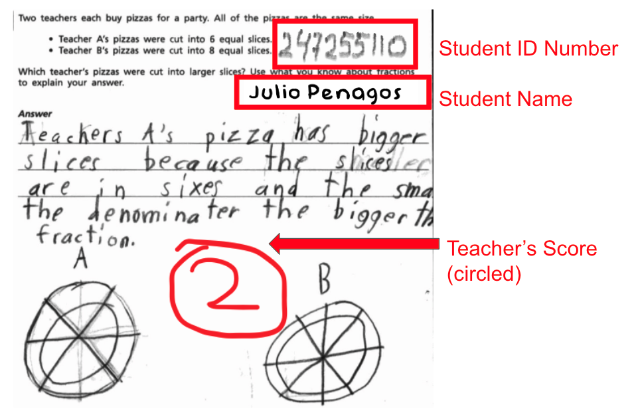 Two teachers each buy pizzas for a party. All of the pizzas are the same size.
• Teacher A's pizzas were cut into 6 equal slices.
• Teacher B's pizzas were cut into 8 equal slices.
247255110
Student ID Number
Which teacher's pizzas were cut into larger slices? Use what you know about fractions
to explain your answer.
Julio Penagos
Student Name
Answer
Teachers A's pizza has bigger
slices because the slices
are in sixes and the sma
the denominater the bigger th
fraction.
Teacher's Score
(circled)
2
A
B